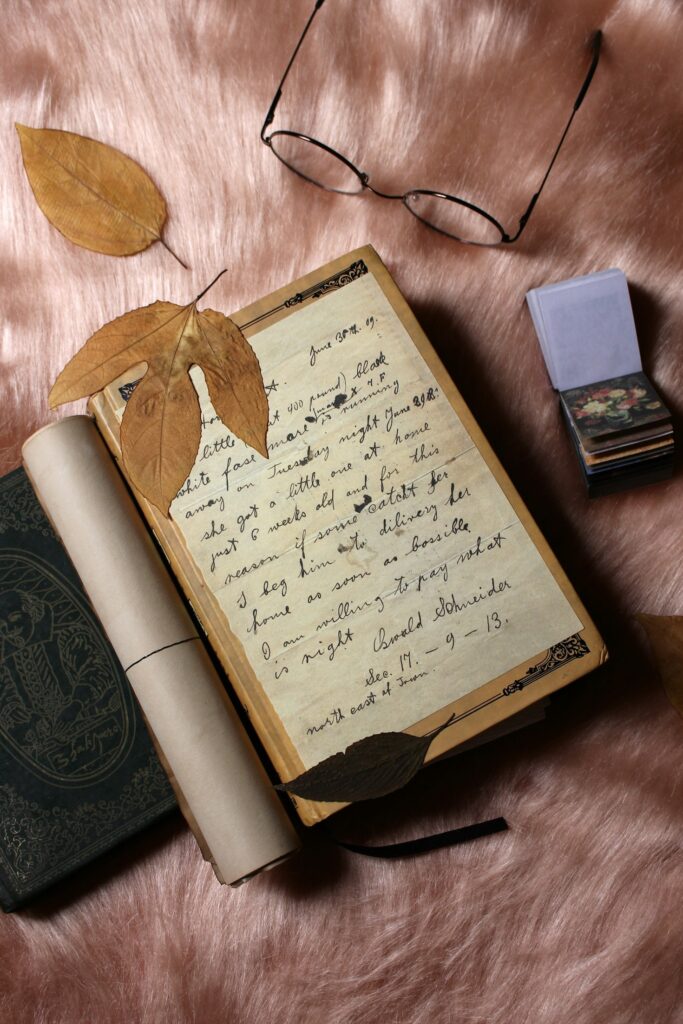 June 30th. 09.
little 400 pound) black
white fase mare is running
away on Tuesday night June 29th.
she got a little one at home
just 6 weeks old and for this
reason if some catcht her
I beg him to dilivery her
home as soon as bossible
I am willing to pay what
is right Oswald Schneider
Sec. 17. - 9 - 13.
north east of Town.